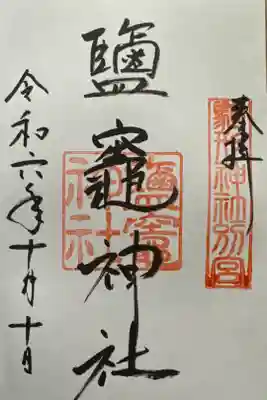 奉拝
神社別宮
鹽竈神社
鹽竈
神社
令和六年十月十日